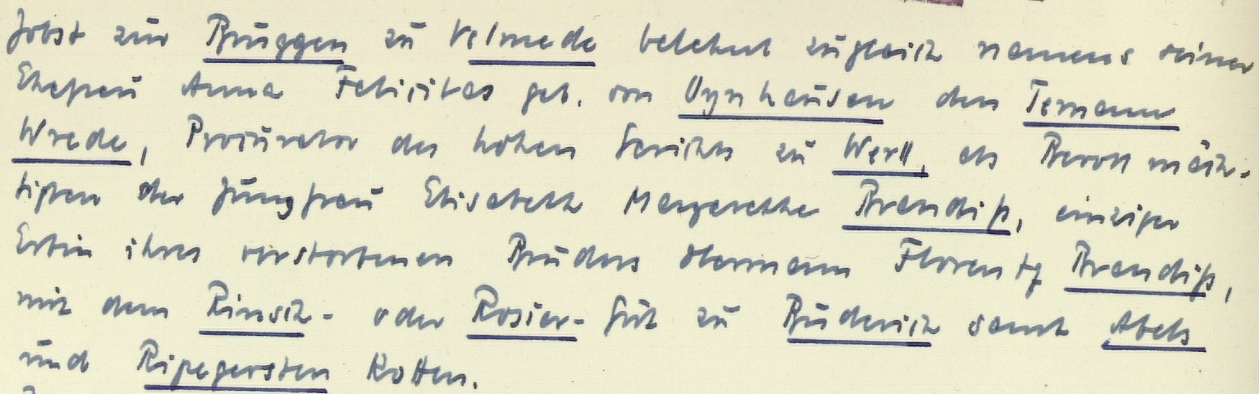 Jobst zur Brüggen zu Velmede belehnt zugleich namens seiner
Ehefrau Anna Felicitas geb. von Oynhausen den Temann
Wrede, Procurator des hohen Gerichts zu Werll, als Bevollmäch-
tigten der Jungfrau Elisabeth Margarethe Brandiß, einziger
Erbin ihres verstorbenen Bruders Hermann Florentz Brandiß,
mit dem Rinsch- oder Rosier-Gut zu Büderich samt Abels
und Ripegersten Kotten.